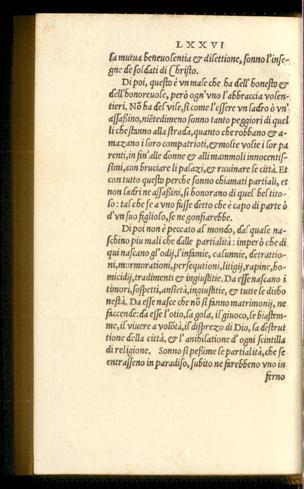 LXXVI
la mutua beneuolentia & dilettione, sonno l'inse-
gne de soldati di Christo.
Di poi, questo è vn male che ha dell' honesto &
dell'honoreuole, però ogn'vno l'abbraccia volen-
tieri. Nõ ha del vile, si come l'essere vn ladro ò vn'
assaßino, niẽtedimeno sonno tanto peggiori di quel
li che stãno alla strada, quanto che robbano & a-
mazano i loro compatrioti, & molte volte i lor pa
renti, in fin'alle donne & alli mammoli innocentis-
simi, con bruciare li palazi, & ruuinare le città. Et
con tutto questo perche sonno chiamati partiali, et
non ladri ne assaßini, si honorano di quel bel tito-
lo: tal che se a vno fusse detto che è capo di parte ò
d'vn suo figliolo, se ne gonfiarebbe.
Di poi non è peccato al mondo, dal quale na-
schino piu mali che dalle partialità: imperò che di
qui nascano gl'odij, l'infamie, calunnie, detrattio-
ni, mormorationi, persequtioni, litigij, rapine, ho-
micidij, tradimenti & ingiustitie. Da esse nascano i
timori, sospetti, ansietà, ingiustitie, & tutte le disho
nestà. Da esse nasce che nõ si fãno matrimonij, ne
faccende: da esse l'otio, la gola, il giuoco, le biastem-
me, il viuere a volõtà, il disprezo di Dio, la destrut
tione della città, & l' anihilatione d' ogni scintilla
di religione. Sonno si peßime le partialità, che se
entrasseno in paradiso, subito ne farebbeno vno in
ferno